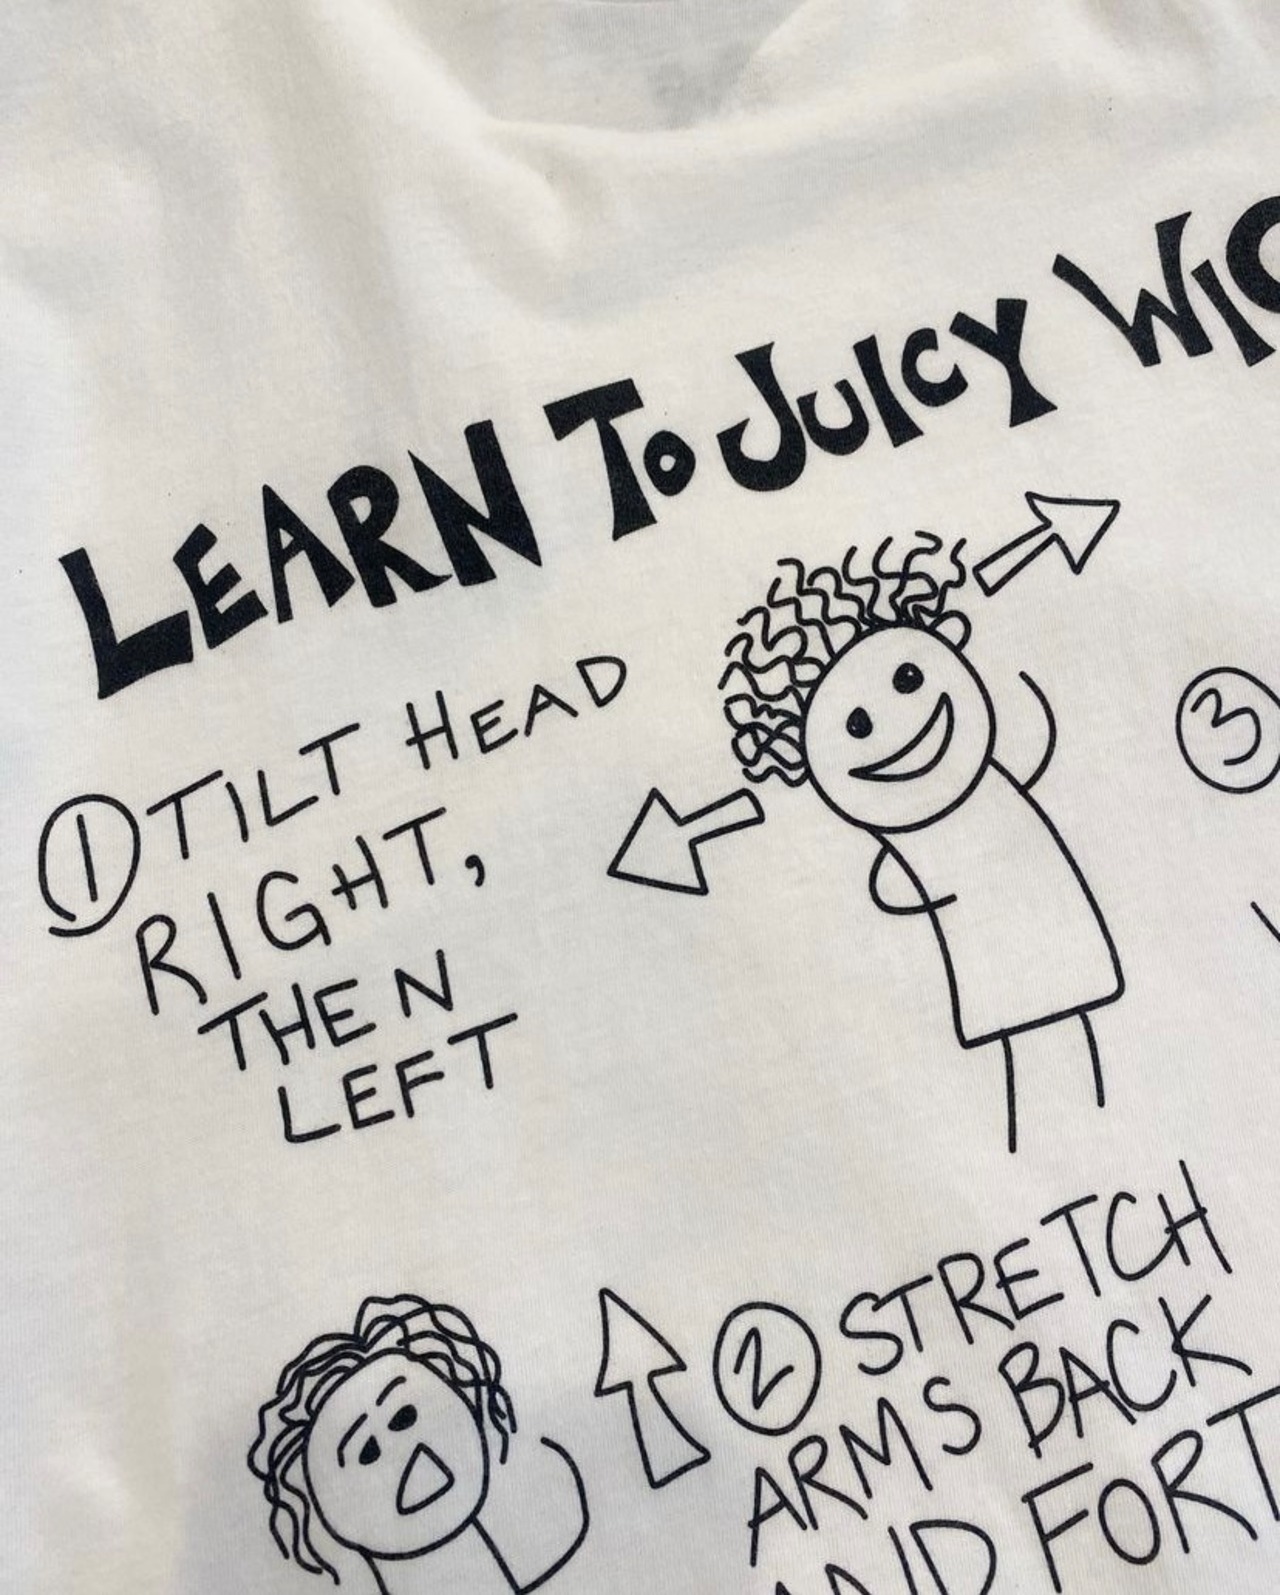 LEARN TO JUICY
① TILT HEAD
RIGHT,
THEN
LEFT
② STRETCH
ARMS BACK
AND FORT
③